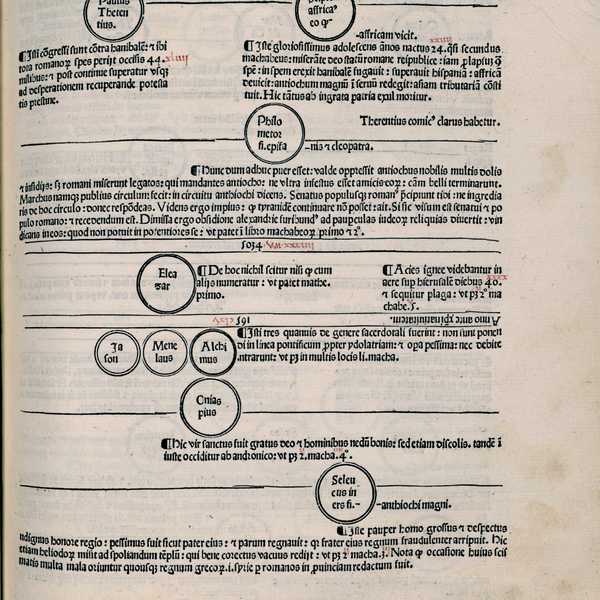 Paulus
Theren
tius.
affrica⁹
eo qꝛ
-affricam vicit.
¶Isti cōgressi sunt cōtra hanibalē: ⁊ ibi
tota romanoꝝ spes perijt occisis 44. xliiij
milibus: ⁊ post continue superatur vsqꝫ
ad desperationem recuperande potesta
tis pristine.
xxiiij
¶Iste gloriosissimus adolescens ānos nactus 24. qͣsi secundus
machabeus: miserāte deo statū romane reipublice: iam ꝑlapsuꝫ qͣsi
spē: in spem erexit hanibalē fugauit: superauit hispaniā: affricā
deuicit: antiochum magnū ī seruū redegit: asiam tributariā cōsti
tuit. Hic tātus ab ingrata patria exul moritur.
Philo
metor
fi. epifa
nis ⁊ cleopatra.
Therentius comic⁹ clarus habetur.
¶Hunc dum adhuc puer esset: valde oppressit antiochus nobilis multis dolis
⁊ insidijs: sꝫ romani miserunt legatos: qui mandantes antiocho: ne vltra infestus esset amicis eoꝝ: cām belli terminarunt.
Marchus namqꝫ publius circulum: fecit: in circuitu anthiochi dicens. Senatus populusqꝫ romanꝰ p̄cipiunt tibi: ne ingredia
ris de hoc circulo: donec respōdeas. Videns ergo impius: ꝙ tyranidē continuare nō posset: ait. Si sic visum est senatui ⁊ po
pulo romano: ⁊ recedendum est. Dimissa ergo obsidione alexandrie furibundꝰ ad paupculas iudeoꝝ reliquias diuertit: vin
dicans in eos: quod non potuit in potentiores se: vt patet ī libro machabeoꝝ primo ⁊ 2°.
5034 vm.xxxiiij
Elea
zar
¶De hoc nichil scitur nisi ꝙ cum
alijs numeratur: vt patet mathe.
primo.
¶Acies ignee videbantur in
aere sup hierusalē diebus 40. xxxx
⁊ sequitur plaga: vt pꝫ 2° ma
chabe. 5.
165
Ja
son
Mene
laus
Alchi
mus
¶Isti tres quamuis de genere sacerdotali fuerint: non sunt ponen
di in linea pontificum ꝓpter ydolatriam: ⁊ oꝑa pessima: nec debite
intrarunt: vt pꝫ in multis locis li. macha.
Onias
pius
¶Hic vir sanctus fuit gratus deo ⁊ hominibus nedū bonis: sed etiam discolis. tandē ī
iuste occiditur ab andronico: vt pꝫ 2. macha. 4°.
Seleu
cus in
ers fi.-
-anthiochi magni.
¶Iste pauper homo grossus ⁊ despectus
indignus honore regio: pessimus fuit sicut pater eius: ⁊ parum regnauit: qꝛ frater eius regnum fraudulenter arripuit. Hic
etiam heliodoꝝ misit ad spoliandum tēplū: qui bene correctus vacuus redijt: vt pꝫ 2. macha. 3. Nota ꝙ occasione huius scis
matis multa mala oriuntur quousqꝫ regnum grecoꝝ .i. syrie ꝑ romanos in ꝓuinciam redactum fuit.